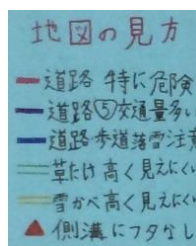 地図の見方
道路 特に危険
道路⑤交通量多い
道路歩道落雪注意
草たけ高く見えにくい
雪かべ高く見えにくい
側溝にフタなし